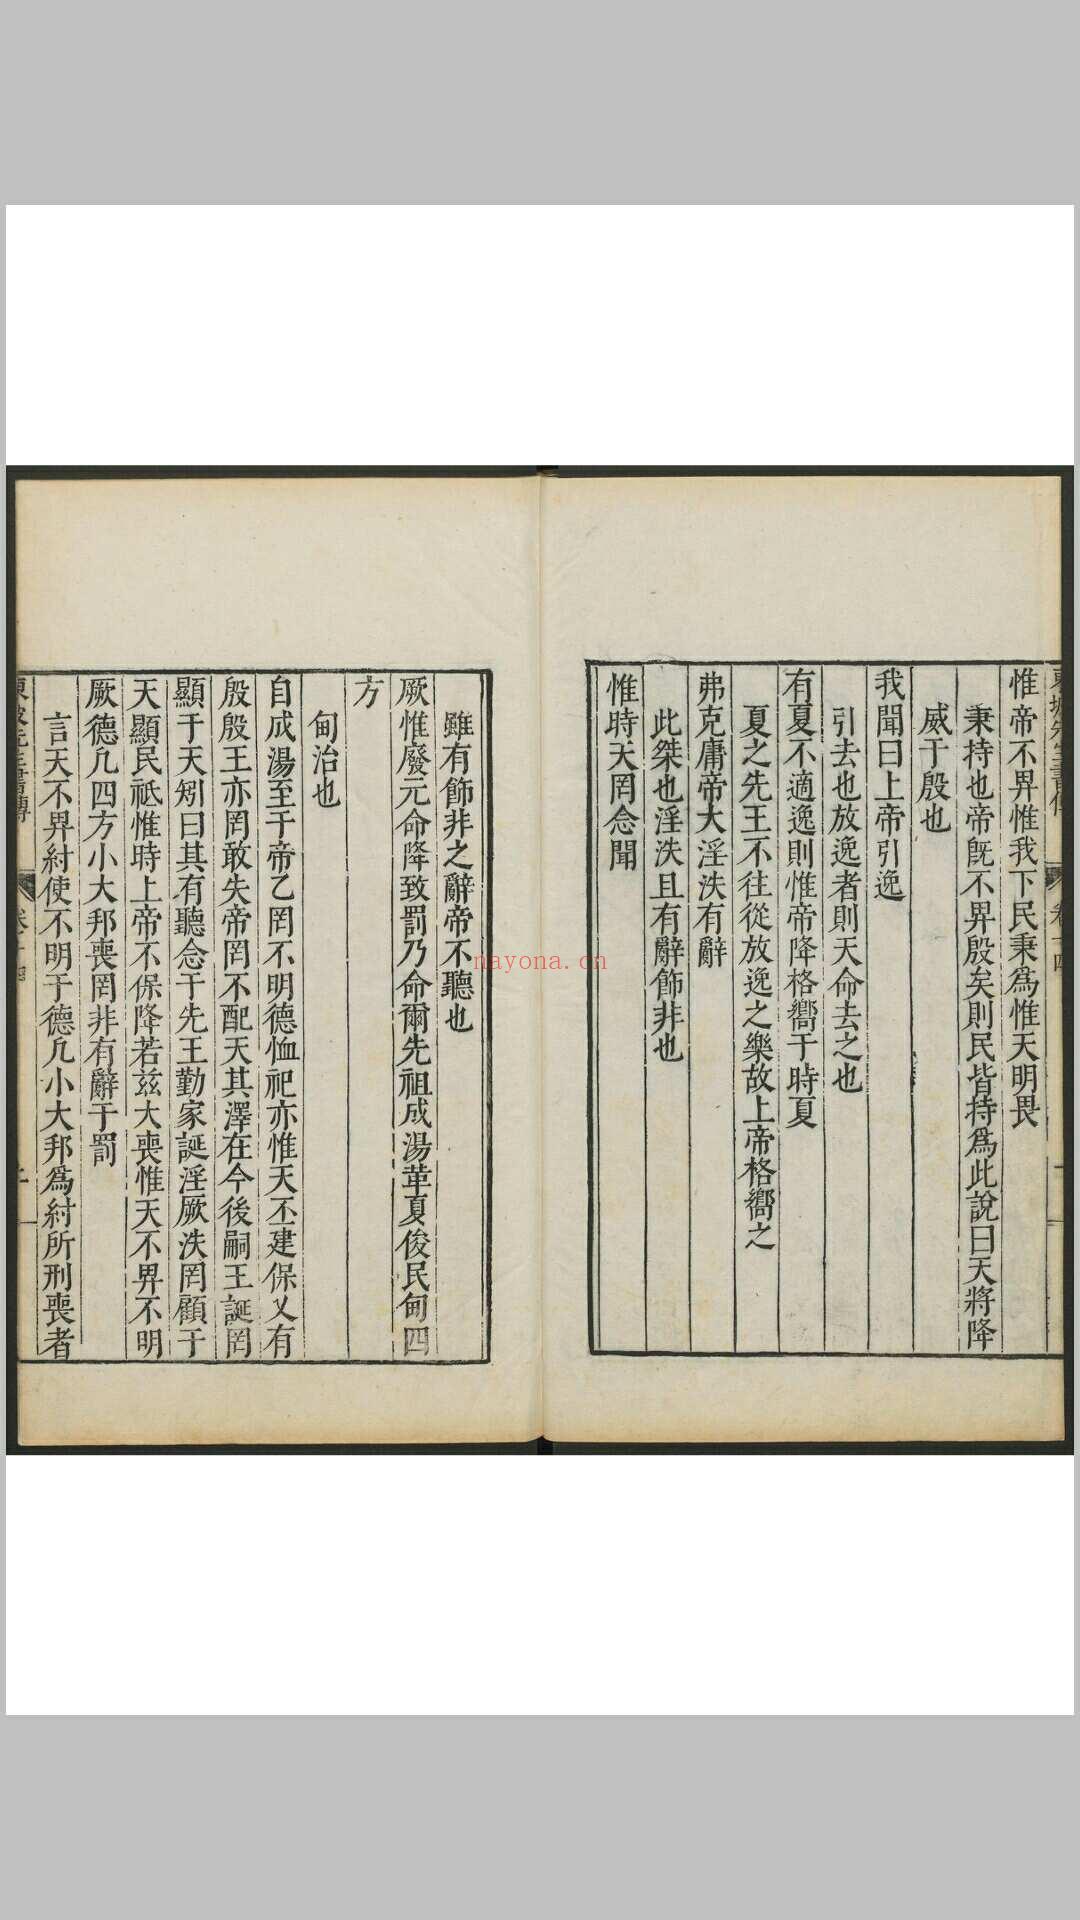 東坡先生書傳 卷十四
惟帝不畀惟我下民秉爲惟天明畏
秉持也帝旣不畀殷矣則民皆持爲此說曰天將降
威于殷也
我聞曰上帝引逸
引去也放逸者則天命去之也
有夏不適逸則惟帝降格嚮于時夏
夏之先王不往從放逸之樂故上帝格嚮之
弗克庸帝大淫泆有辭
此桀也淫泆且有辭飾非也
惟時天罔念聞
雖有飾非之辭帝不聽也
厥惟廢元命降致罰乃命爾先祖成湯革夏俊民甸四
方
甸治也
自成湯至于帝乙罔不明德恤祀亦惟天丕建保乂有
殷殷王亦罔敢失帝罔不配天其澤在今後嗣王誕罔
顯于天矧曰其有聽念于先王勤家誕淫厥泆罔顧于
天顯民祗惟時上帝不保降若茲大喪惟天不畀不明
厥德凡四方小大邦喪罔非有辭于罰
言天不畀紂使不明于德凡小大邦爲紂所刑喪者
東坡先生書傳 卷十四
nayona.cn